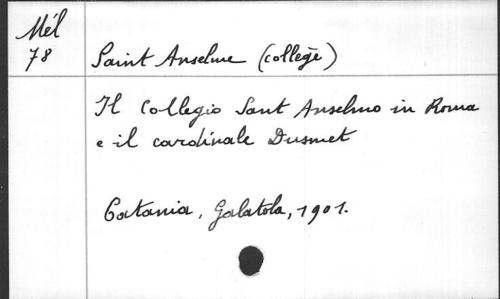 Mél
78
Saint Anselme (collège)
Il Collegio Sant Anselmo in Roma
e il cardinale Dusmet
Catania, Galatola, 1901.